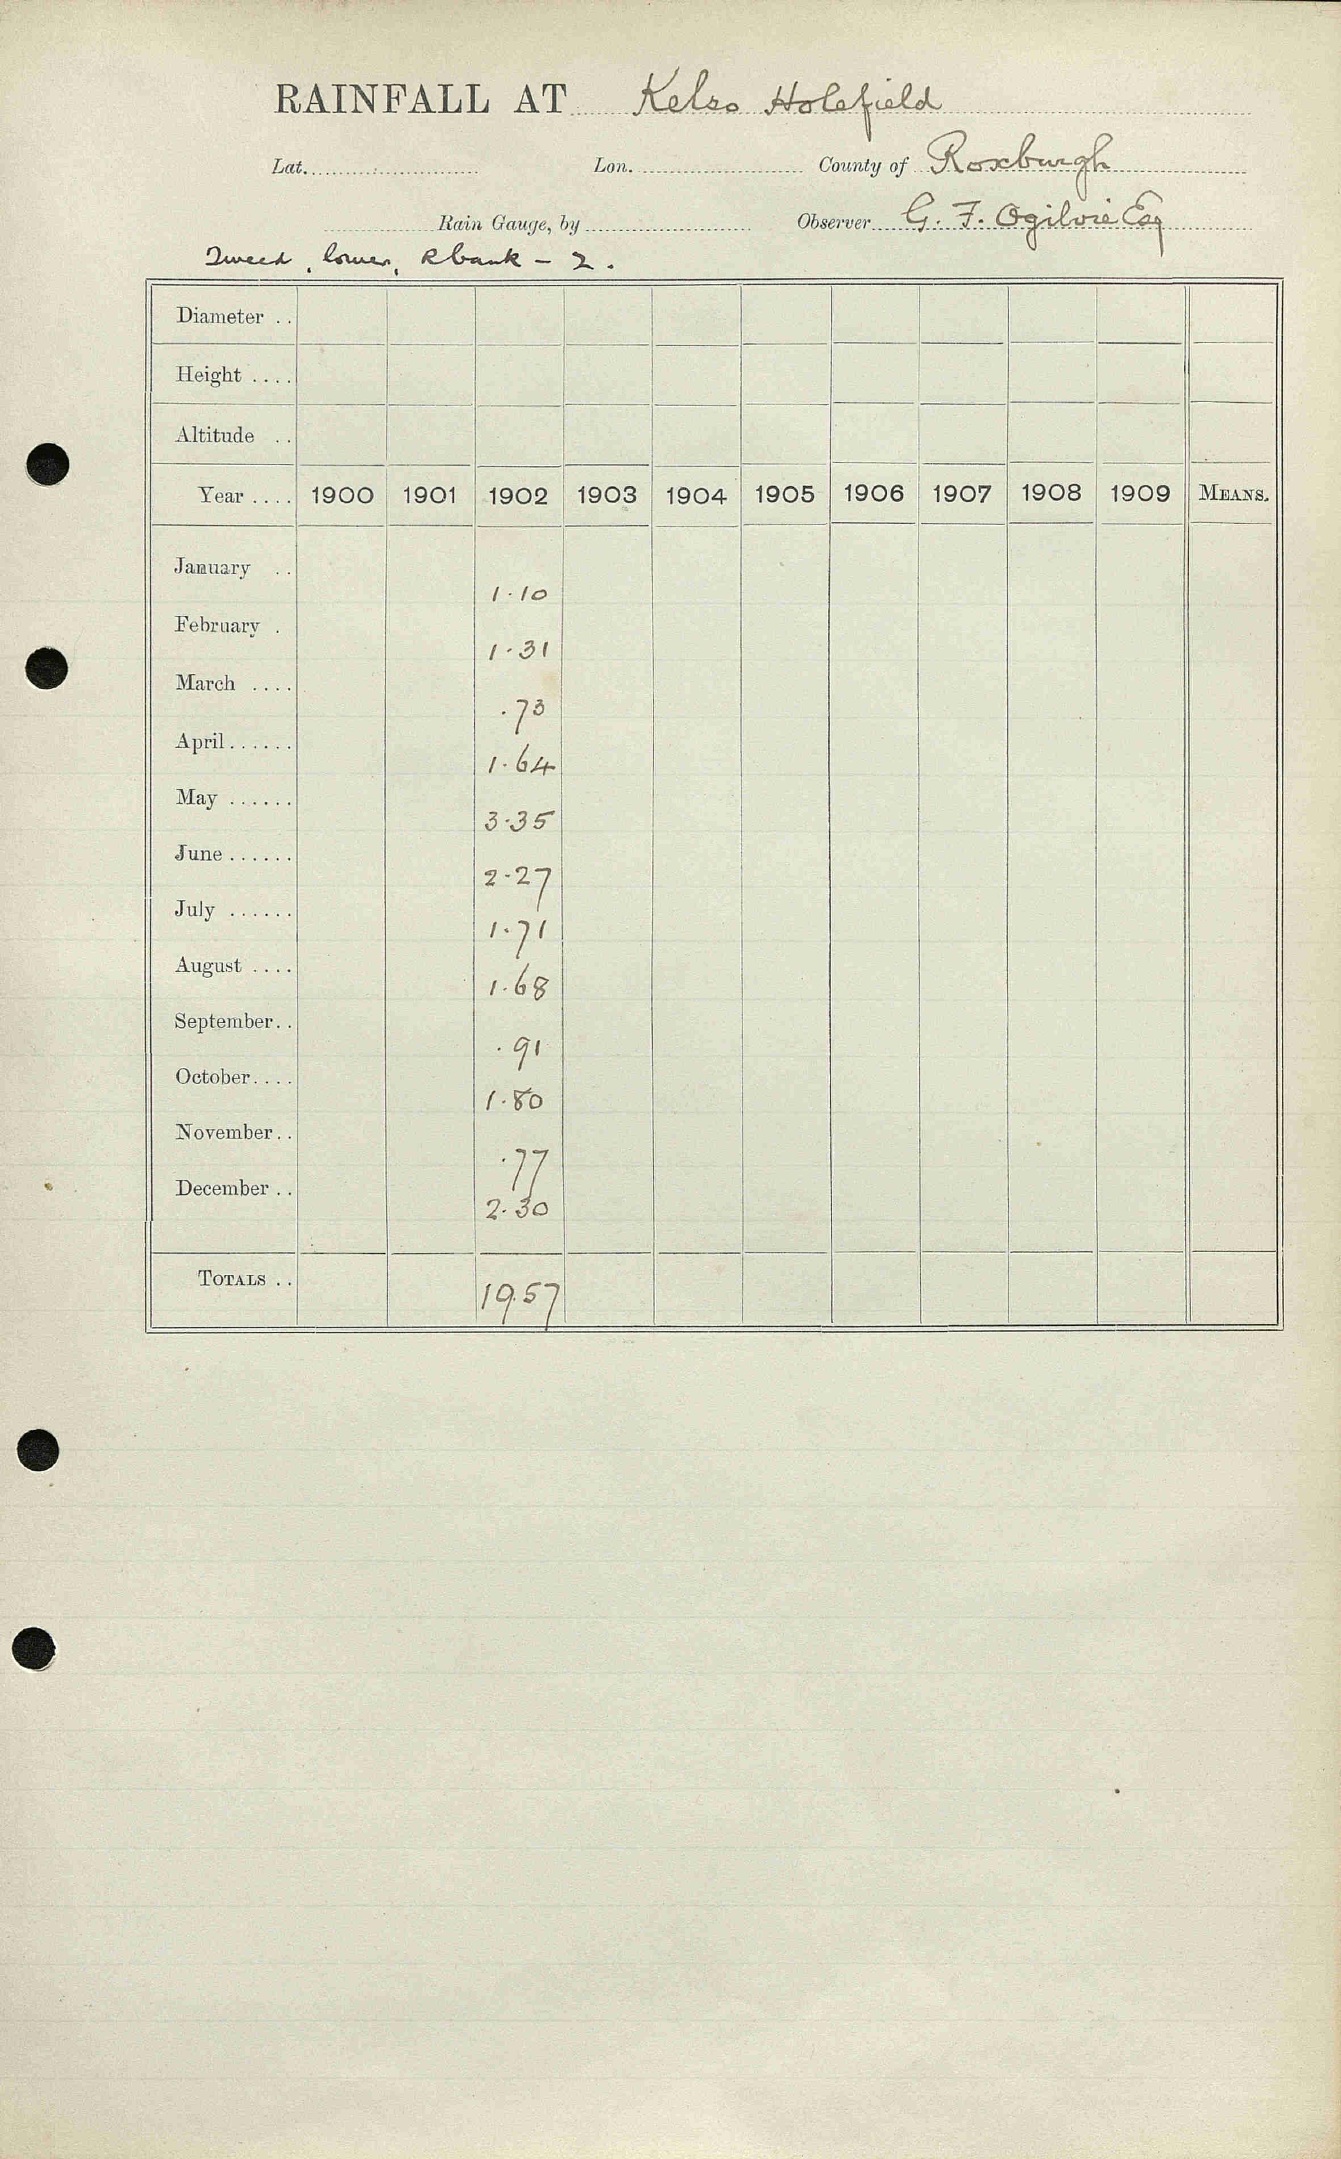 RAINFALL AT Kelso Holefield
Lat. Lon. County of Roxburgh
Rain Gauge, by Observer G. F. Ogilvie Esq
Tweed, lower, R bank - 2.
Diameter ..
Height ....
Altitude ..
Year .... 1900 1901 1902 1903 1904 1905 1906 1907 1908 1909 MEANS.
January ..
1.10
February .
1.31
March ....
.73
April......
1.64
May ......
3.35
June ......
2.27
July ......
1.71
August ....
1.68
September..
.91
October....
1.80
November..
.77
December ..
2.30
TOTALS ..
19.57